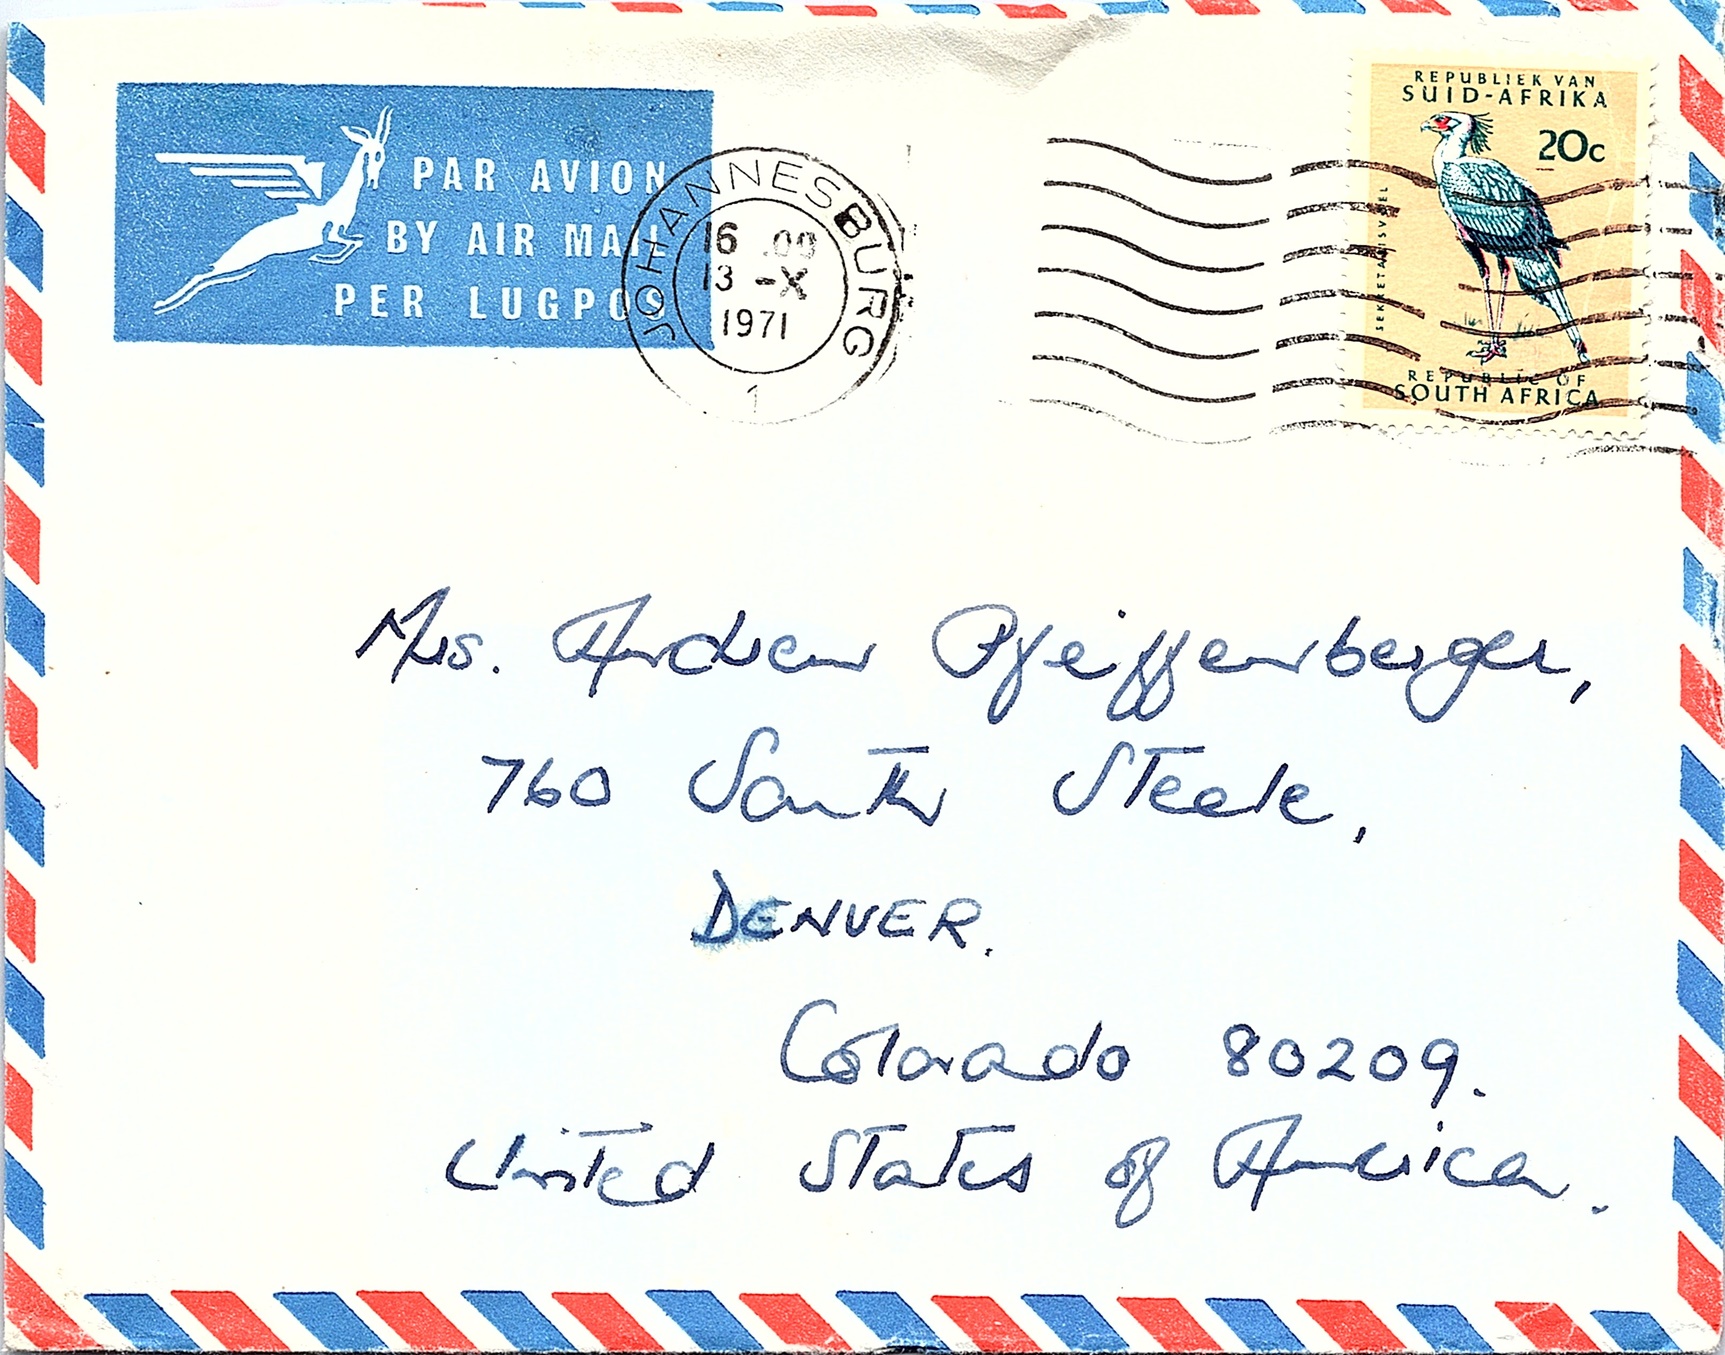 REPUBLIEK VAN
SUID-AFRIKA
20c
SEKRETARISVOËL
REPUBLIC OF
SOUTH AFRICA
PAR AVION
BY AIR MAIL
PER LUGPOS
JOHANNESBURG
16 .00
13 -X
1971
1
Mrs. Andrew Pfeiffenberger,
760 South Steele,
DENVER.
Colorado 80209.
United States of America.